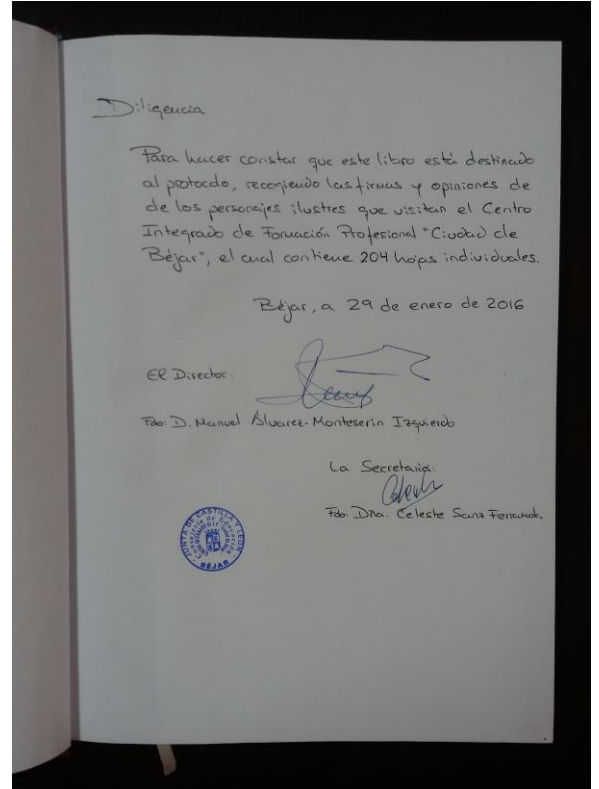 Diligencia
Para hacer constar que este libro está destinado
al protocolo, recogiendo las firmas y opiniones de
de los personajes ilustres que visitan el Centro
Integrado de Formación Profesional "Ciudad de
Béjar", el cual contiene 204 hojas individuales.
Béjar, a 29 de enero de 2016
El Director:
Fdo: D. Manuel Álvarez-Monteserín Izquierdo
La Secretaria:
Fdo: Dña. Celeste Sanz
JUNTA DE CASTILLA Y LEON
Consejería de Educación
BÉJAR